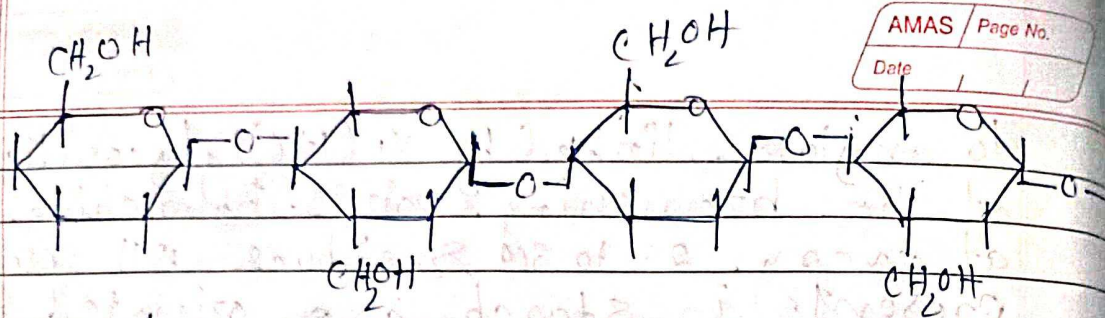 AMAS Page No.
Date
CH2OH CH2OH
O O O O
O O O O
CH2OH CH2OH